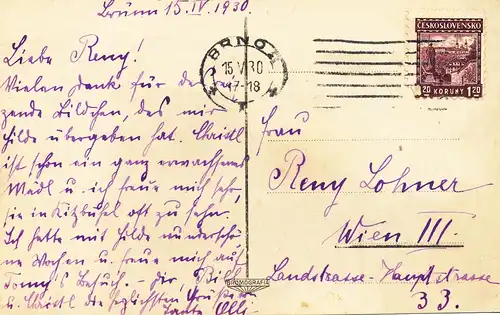 Brünn 15.IV.1930.
Liebe Reny!
Vielen Dank für das
zende Bildchen, das mir
Hilde übergeben hat. Christl
ist schon ein ganz erwachsenes
Mädl u. ich freue mich sehr,
sie in Kitzbühel oft zu sehn.
Ich hatte mit Hilde wunderschö-
ne Wochen u. freue mich auf
Tommy's Besuch. - Dir,
u. Christl die herzlichsten Grüsse
Tante Olli
BRNO
15 V 30
17-18
ČESKOSLOVENSKO
20 KORUNY 1.20
Frau
Reny Lohner
Wien III.
Landstrasse-Hauptstrasse
33.
BROMOGRAFIA